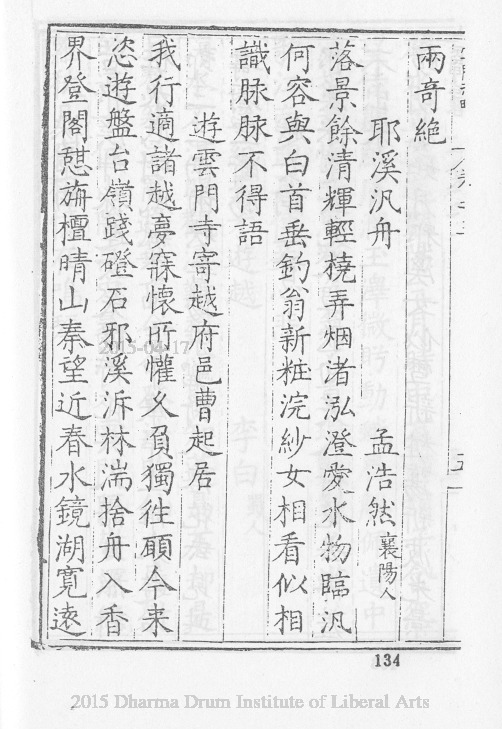 兩奇絶
耶溪汎舟　孟浩然 襄陽人
落景餘清輝輕橈弄烟渚泓澄愛水物臨汎
何容與白首垂釣翁新粧浣紗女相看似相
識脉脉不得語
遊雲門寺寄越府邑曹起居
我行適諸越夢寐懷所懽久負獨徃願今来
恣遊盤台嶺踐磴石邪溪泝林湍捨舟入香
界登閣憇旃檀晴山秦望近春水鏡湖寬逺
134
2015 Dharma Drum Institute of Liberal Arts